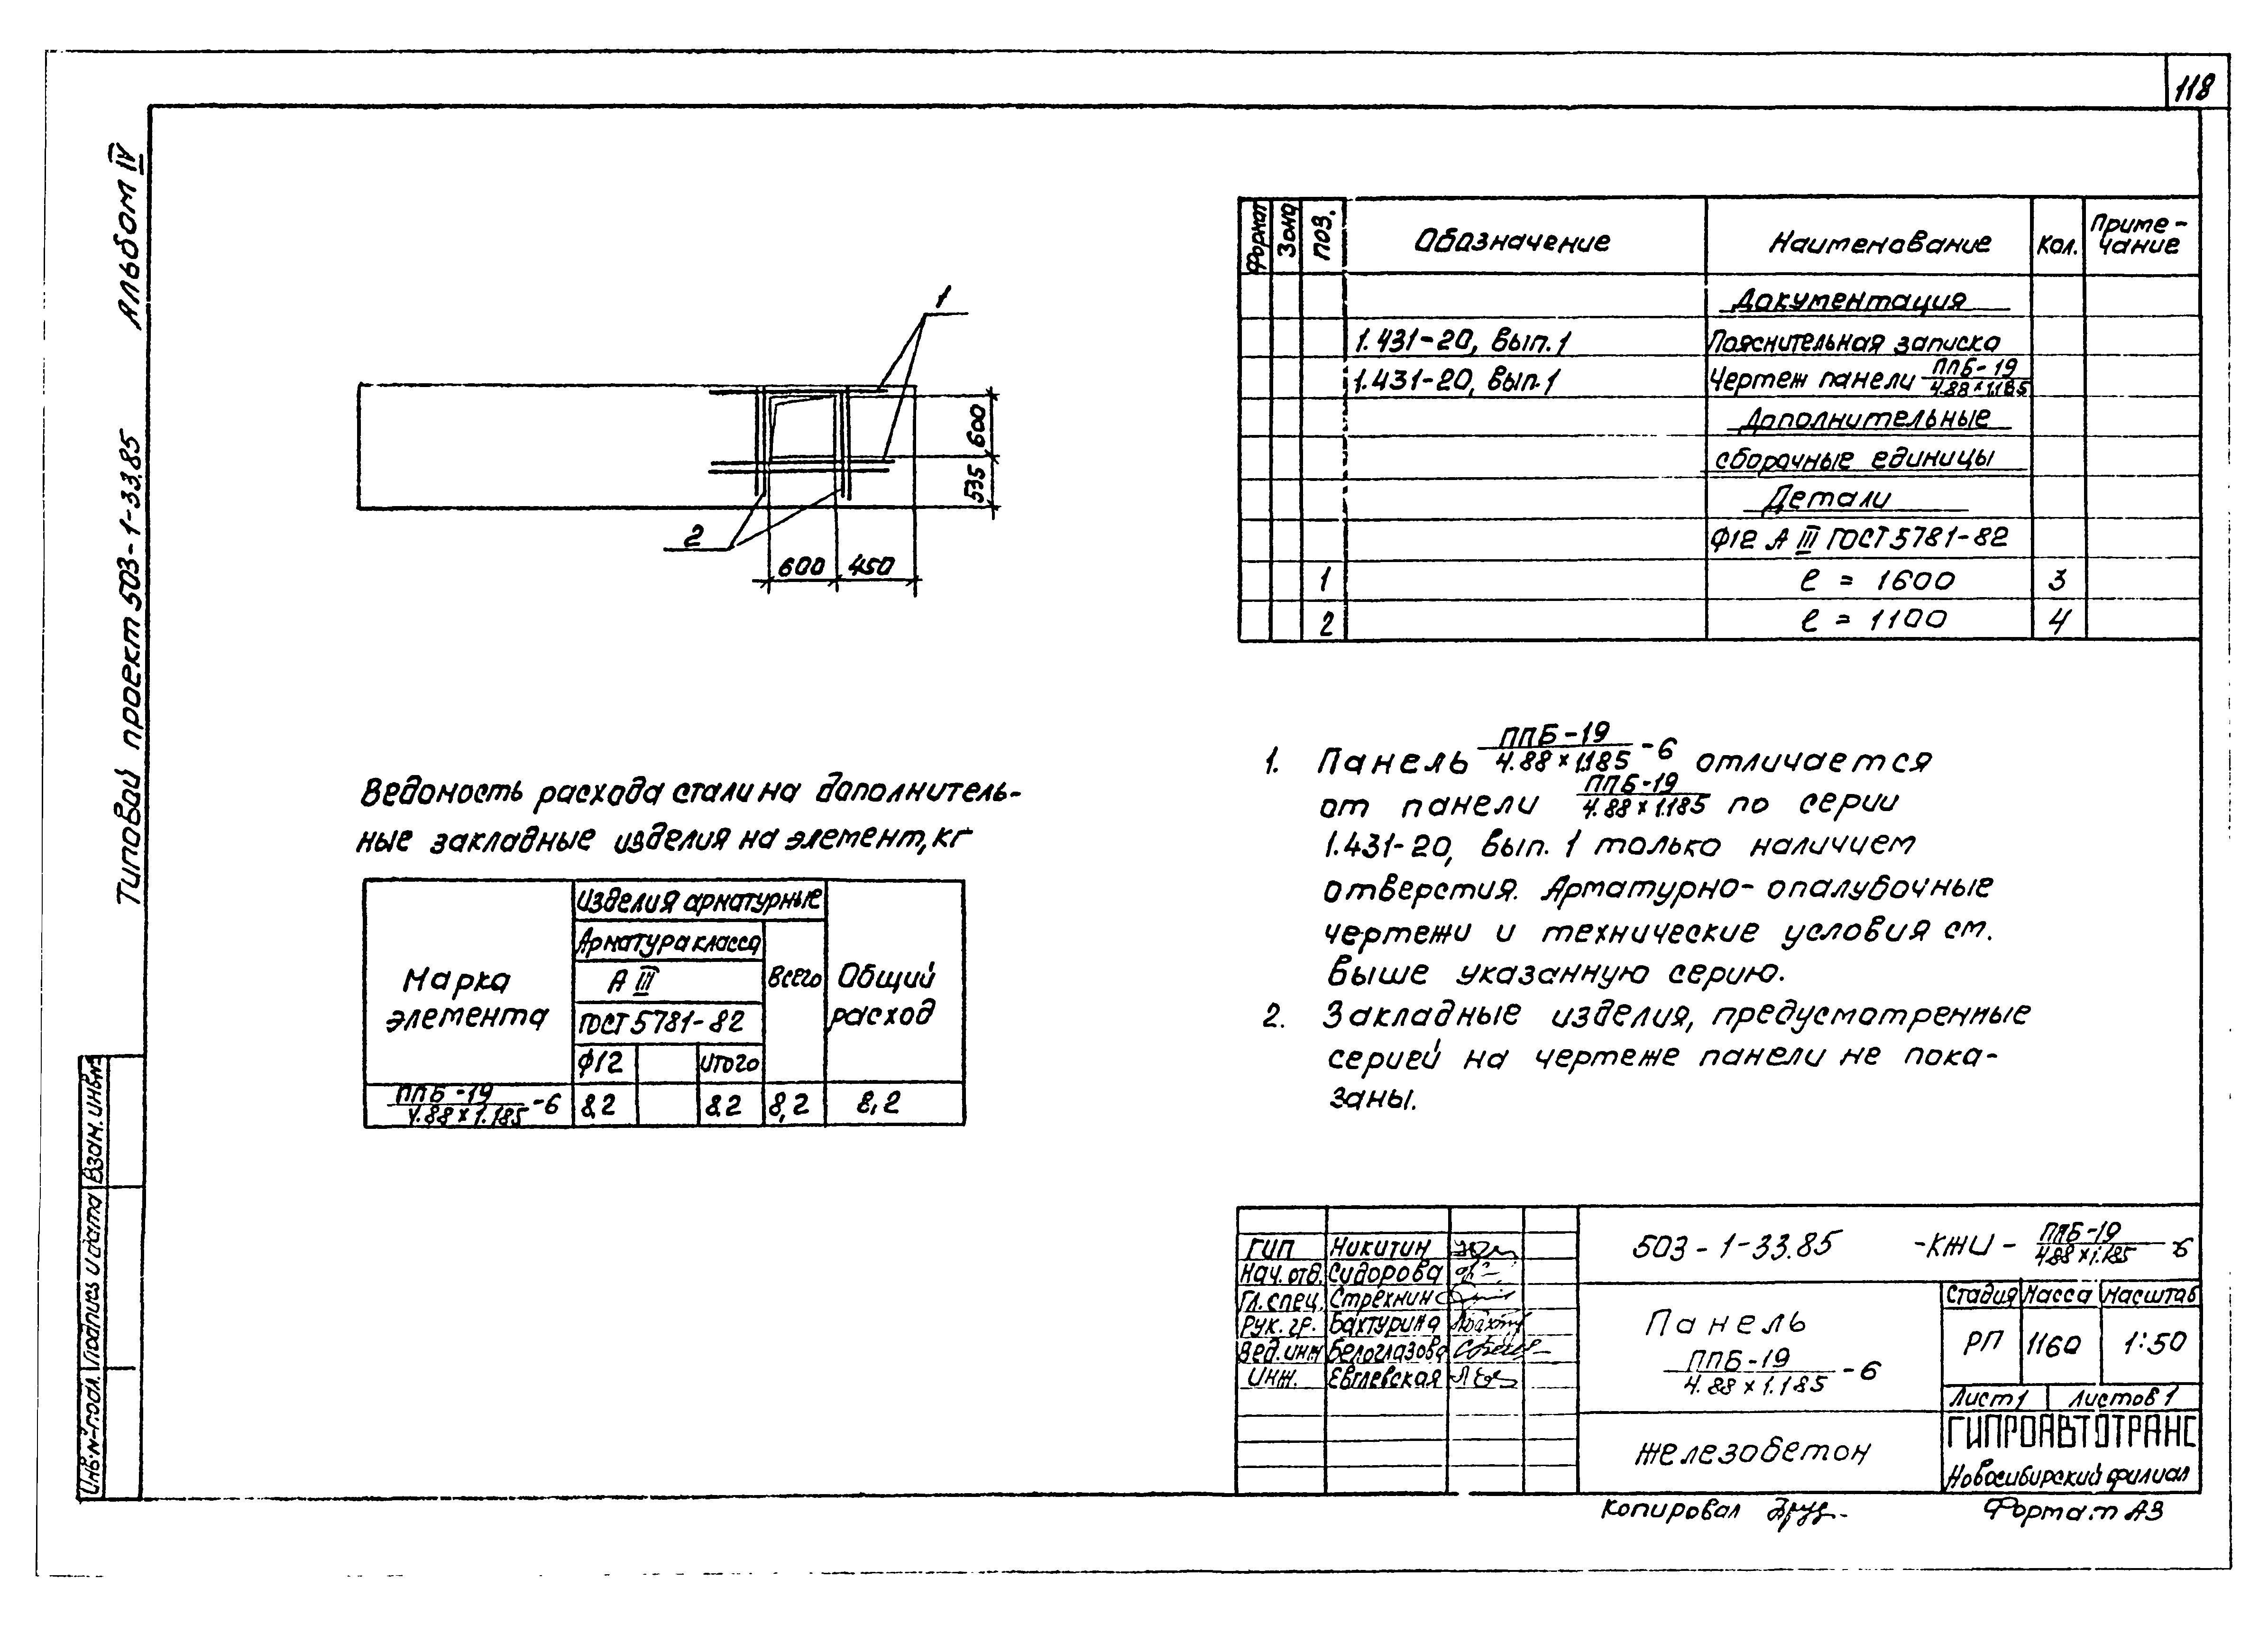 118
Альбом IV
Типовой проект 503-1-33.85
1
2
600
535
600
450
Формат
Зона
Поз.
Обозначение
Наименование
Кол.
Приме-
чание
Документация
1.431-20, вып.1 Пояснительная записка
1.431-20, вып.1 Чертеж панели ППБ-19
4.88×1.185
Дополнительные
сборочные единицы
Детали
Ф12 А III ГОСТ 5781-82
1 ℓ = 1600 3
2 ℓ = 1100 4
Ведомость расхода стали на дополнитель-
ные закладные изделия на элемент, кг
Марка
элемента
Изделия арматурные
Арматура класса
А III
ГОСТ 5781-82
Ф12
итого
Всего
Общий
расход
ППБ-19
4.88×1.185 -6 8,2 8,2 8,2 8,2
1. Панель ППБ-19
4.88×1.185 -6 отличается
от панели ППБ-19
4.88×1.185 по серии
1.431-20, вып. 1 только наличием
отверстия. Арматурно-опалубочные
чертежи и технические условия см.
выше указанную серию.
2. Закладные изделия, предусмотренные
серией на чертеже панели не пока-
заны.
ГИП Никитин
Нач. отд. Сидорова
Гл. спец. Стрехнин
Рук. гр. Бахтурина
Вед. инж Белоглазова
Инж. Евглевская
503-1-33.85 -КЖИ- ППБ-19
4.88×1.185 -6
Панель
ППБ-19
4.88×1.185 -6
Стадия Масса Масштаб
РП 1160 1:50
Лист 1 Листов 1
железобетон
ГИПРОАВТОТРАНС
Новосибирский филиал
Копировал
Формат А3
Инв. № подл.
Подпись и дата
Взам. инв. №